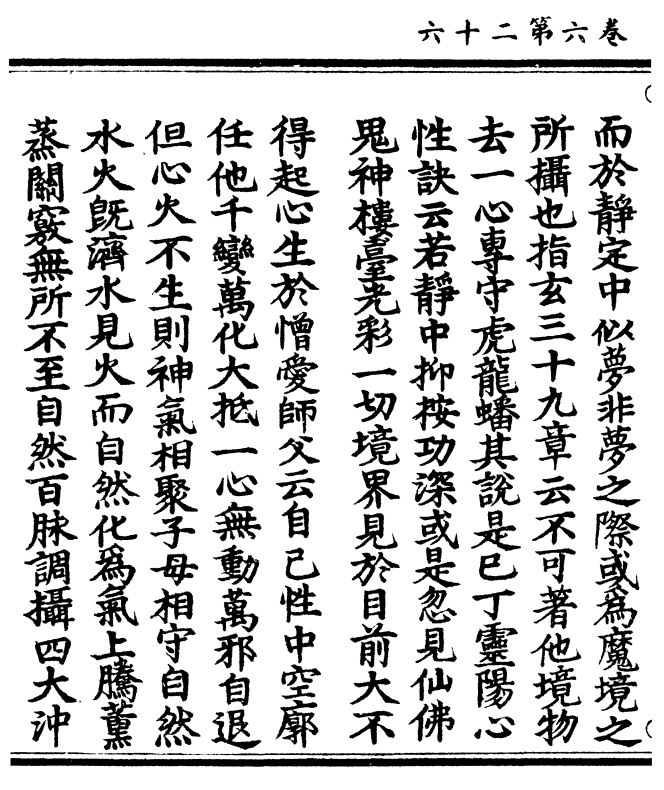 卷六第二十六
而於靜定中似夢非夢之際或爲魔境之
所攝也指玄三十九章云不可著他境物
去一心專守虎龍蟠其説是已丁靈陽心
性訣云若靜中抑按功深或是忽見仙佛
鬼神樓臺光彩一切境界見於目前大不
得起心生於憎愛師父云自己性中空廓
任他千變萬化大抵一心無動萬邪自退
但心火不生則神氣相聚子母相守自然
水火旣濟水見火而自然化爲氣上騰薰
蒸關竅無所不至自然百脉調攝四大沖